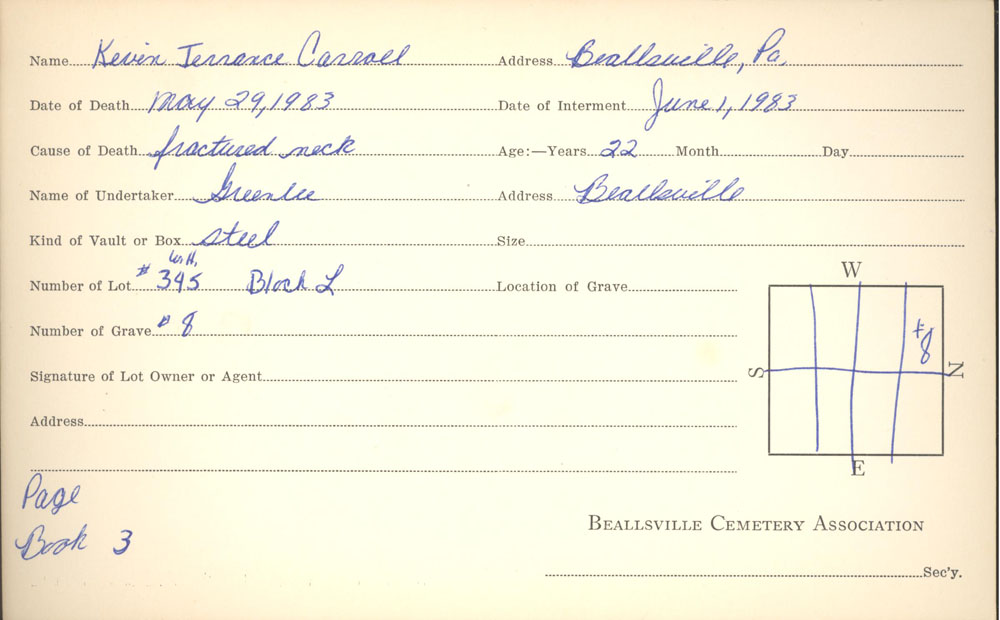 Name Kevin Terrance Carroll Address Beallsville, Pa.
Date of Death May 29, 1983 Date of Interment June 1, 1983
Cause of Death fractured neck Age:—Years 22 Month Day
Name of Undertaker Greenlee Address Beallsville
Kind of Vault or Box steel Size
W.H.
Number of Lot # 345 Block L Location of Grave
W
Number of Grave # 8
#8
S
N
Signature of Lot Owner or Agent
Address
E
Page
Book 3
BEALLSVILLE CEMETERY ASSOCIATION
Sec'y.